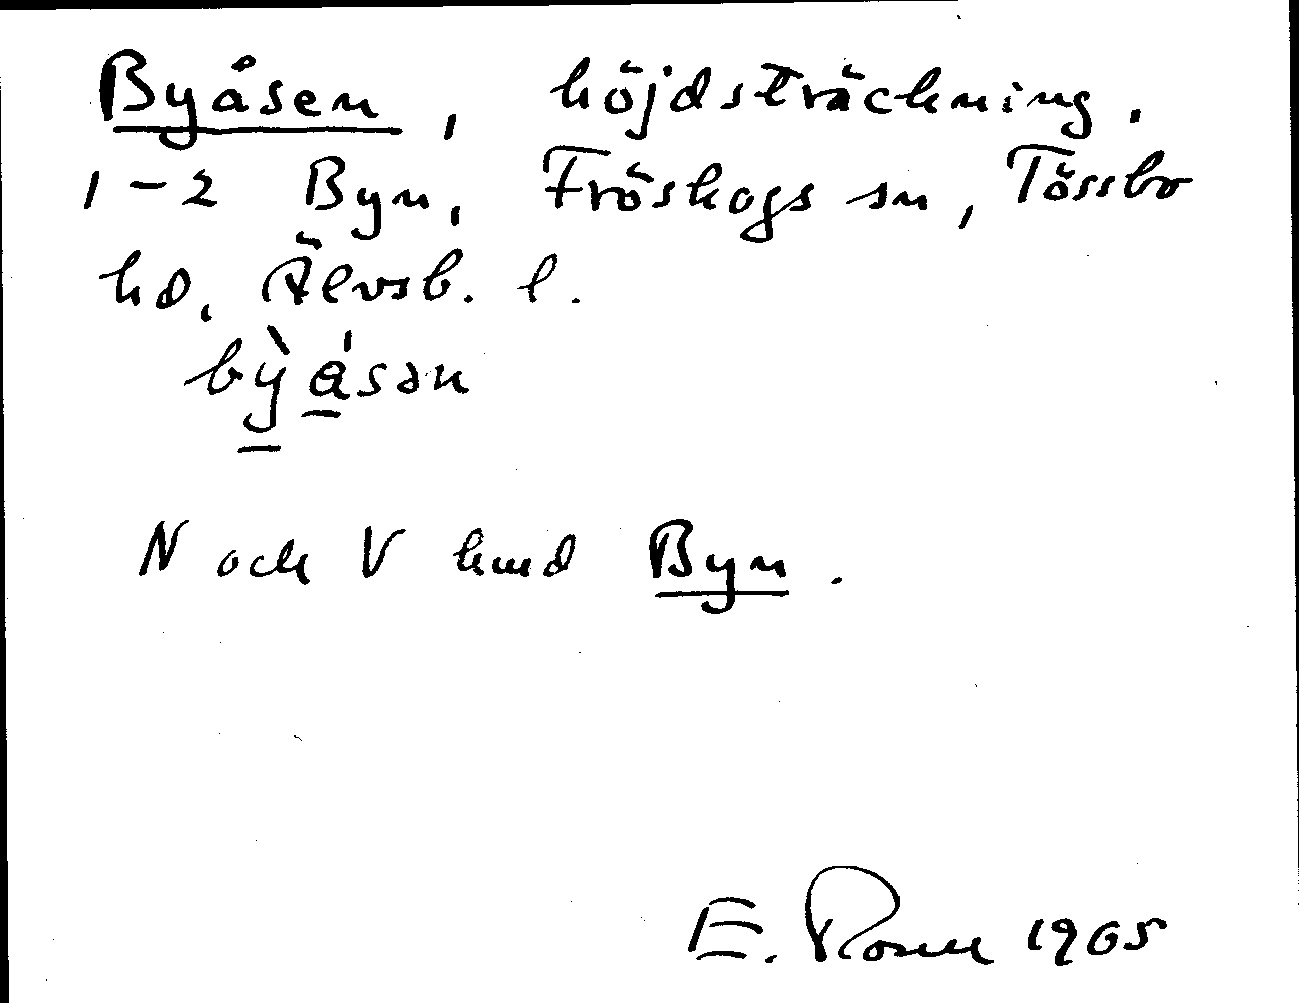 Byåsen, höjdsträckning.
1-2 Byn, Fröskogs sn, Tössbo
hd, Älvsb. l.
bỳåsən
N och V kmd Byn.
E. 1965